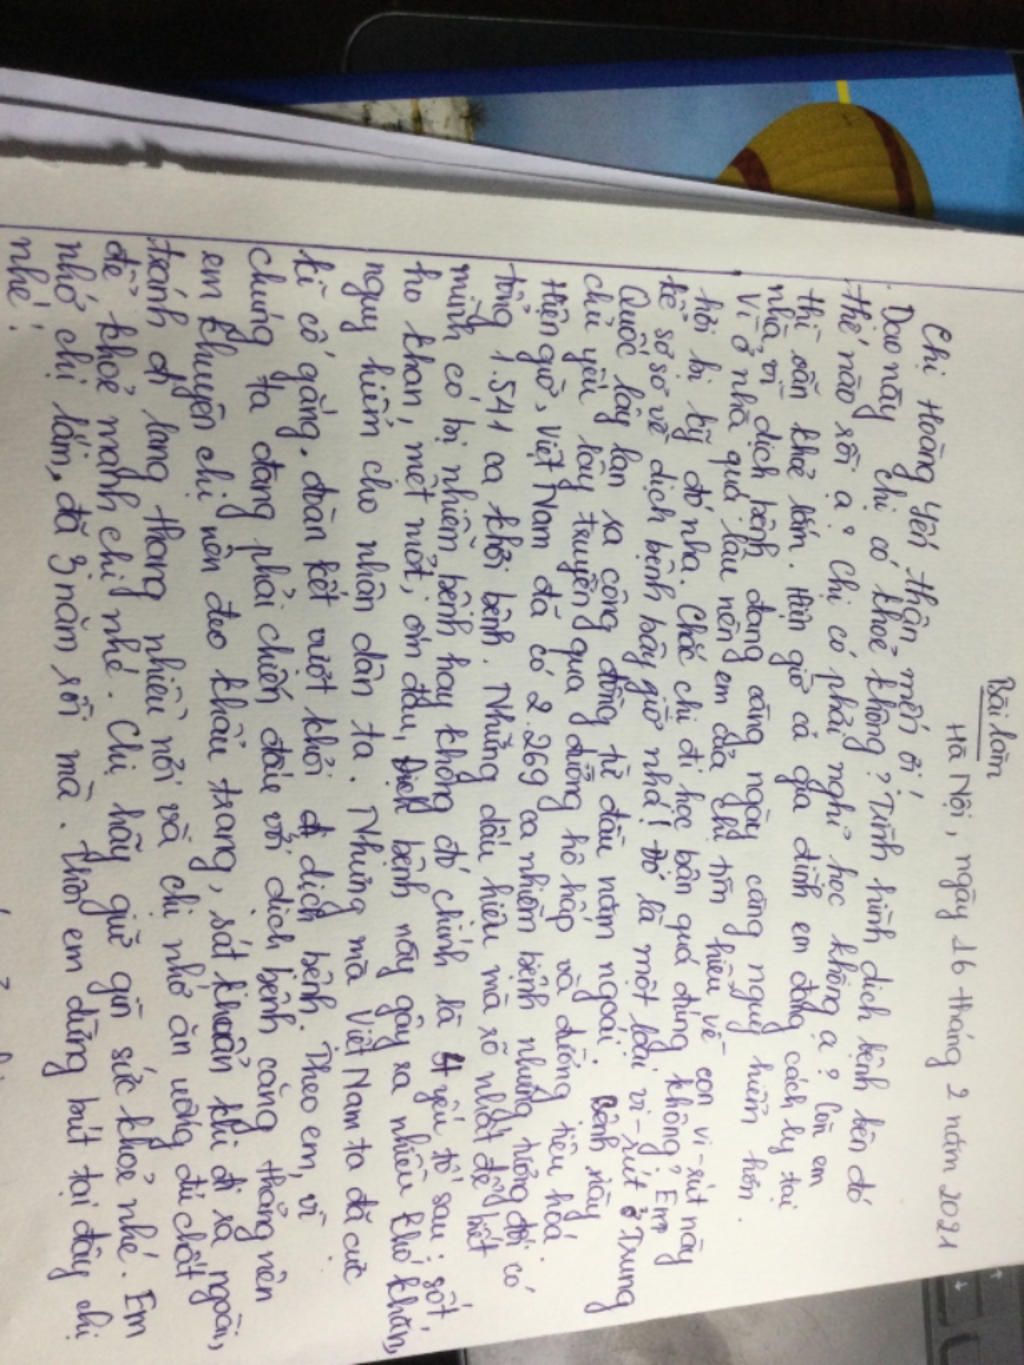 Bài làm
Hà Nội, ngày 16 tháng 2 năm 2021
Chị Hoàng Yến thân mến ơi!
Dạo này chị có khoẻ không? Tình hình dịch bệnh bên đó
thế nào rồi ạ? Chị có phải nghỉ học không ạ? Còn em
thì vẫn khoẻ lắm. Hiện giờ cả gia đình em đang cách ly tại
nhà, vì dịch bệnh đang càng ngày càng nguy hiểm hơn.
Vì ở nhà quá lâu nên em đã tìm hiểu về con vi-rút này
hơi bị kỹ đó nha. Chắc chị đi học bận quá đúng không? Em
kể sơ sơ về dịch bệnh bây giờ nhá! Đó là một loại vi-rút ở Trung
Quốc lây lan ra cộng đồng từ đầu năm ngoái. Bệnh này
chủ yếu lây truyền qua đường hô hấp và đường tiêu hoá.
Hiện giờ, Việt Nam đã có 2.269 ca nhiễm bệnh nhưng tương đối có
tổng 1.541 ca khỏi bệnh. Những dấu hiệu mà rõ nhất để biết
mình có bị nhiễm bệnh hay không đó chính là 4 yếu tố sau: sốt,
ho khan, mệt mỏi, ớn đau, Dịch bệnh này gây ra nhiều khó khăn,
nguy hiểm cho nhân dân ta. Nhưng mà Việt Nam ta đã cực
kì cố gắng, đoàn kết vượt khỏi dịch bệnh. Theo em, vì
chúng ta đang phải chiến đấu với dịch bệnh căng thẳng nên
em khuyên chị nên đeo khẩu trang, sát khuẩn khi đi ra ngoài,
tránh đi lang thang nhiều nơi và chị nhớ ăn uống đủ chất
để khoẻ mạnh chị nhé. Chị hãy giữ gìn sức khoẻ nhé. Em
nhớ chị lắm, đã 3 năm rồi mà. Thôi em dừng bút tại đây chị
nhé!